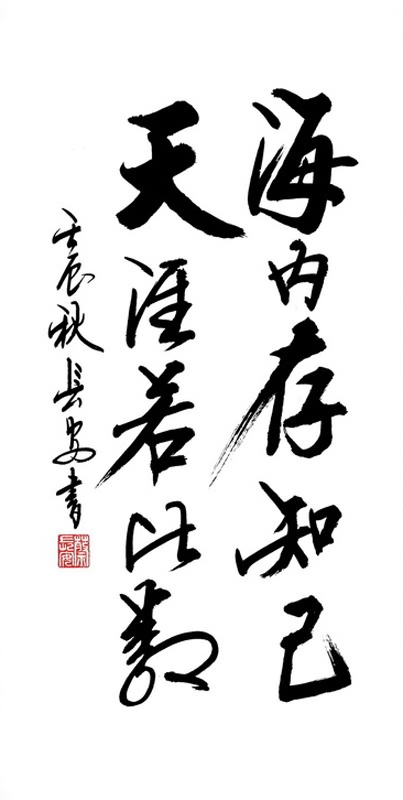 海内存知己
天涯若比鄰
壬辰秋長安書